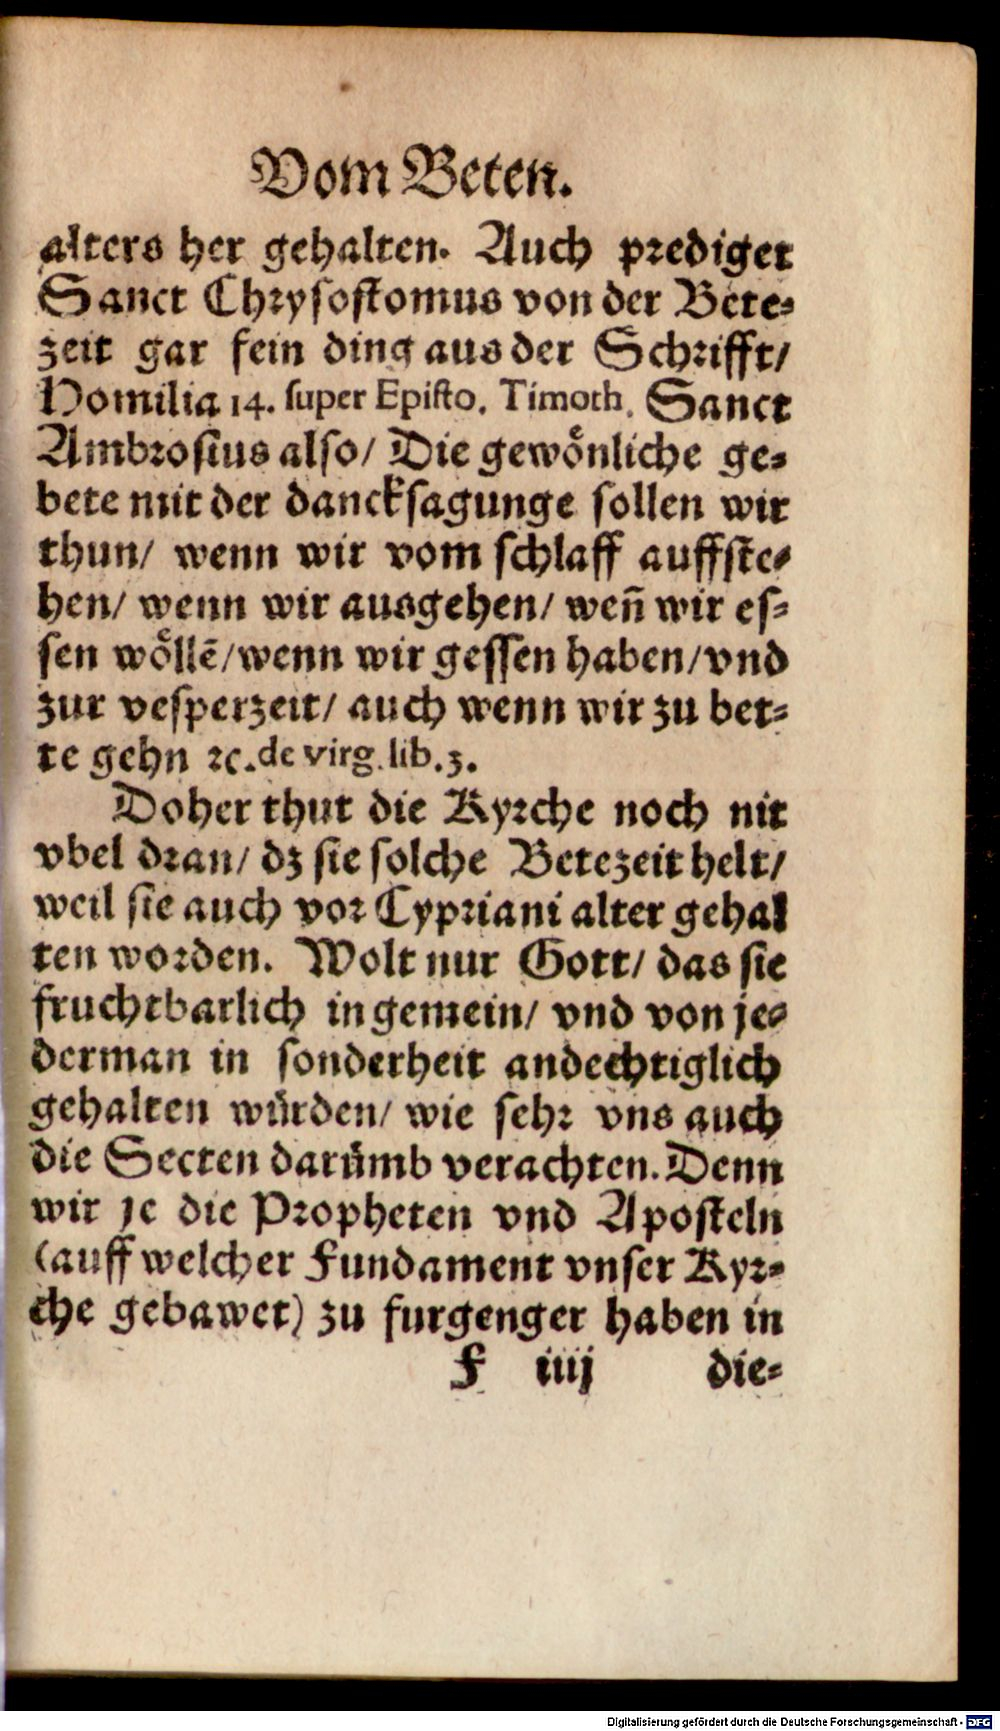 Vom Beten.
alters her gehalten. Auch prediget
Sanct Chrysostomus von der Bete-
zeit gar fein ding aus der Schrifft/
Homilia 14. super Episto. Timoth. Sanct
Ambrosius also/ Die gewoͤnliche ge-
bete mit der dancksagunge sollen wir
thun/ wenn wir vom schlaff auffste-
hen/ wenn wir ausgehen/ weñ wir es-
sen woͤllẽ/wenn wir gessen haben/vnd
zur vesperzeit/ auch wenn wir zu bet-
te gehn ꝛc. de virg. lib. 3.
Doher thut die Kyrche noch nit
vbel dran/ dz sie solche Betezeit helt/
weil sie auch vor Cypriani alter gehal
ten worden. Wolt nur Gott/ das sie
fruchtbarlich in gemein/ vnd von je-
derman in sonderheit andechtiglich
gehalten wuͤrden/ wie sehr vns auch
die Secten daruͤmb verachten. Denn
wir je die Propheten vnd Aposteln
(auff welcher Fundament vnser Kyr-
che gebawet) zu furgenger haben in
F iiij die-
Digitalisierung gefördert durch die Deutsche Forschungsgemeinschaft - DFG